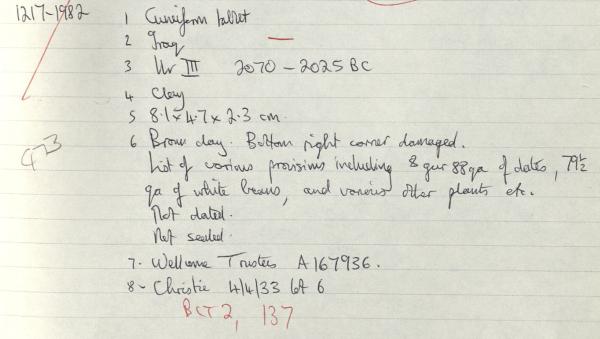 1217-1982
1 Cuneiform tablet
2 Iraq
3 Ur III 2070-2025 BC
4 Clay
5 8.1 x 4.7 x 2.3 cm
6 Brown clay. Bottom right corner damaged.
List of various provisions including 8 gur 88 qa of dates, 79½
qa of white beans, and various other plants etc.
Not dated.
Not sealed.
473
7. Wellcome Trustees A167936.
8- Christie 4/4/33 lot 6
BCT 2, 137